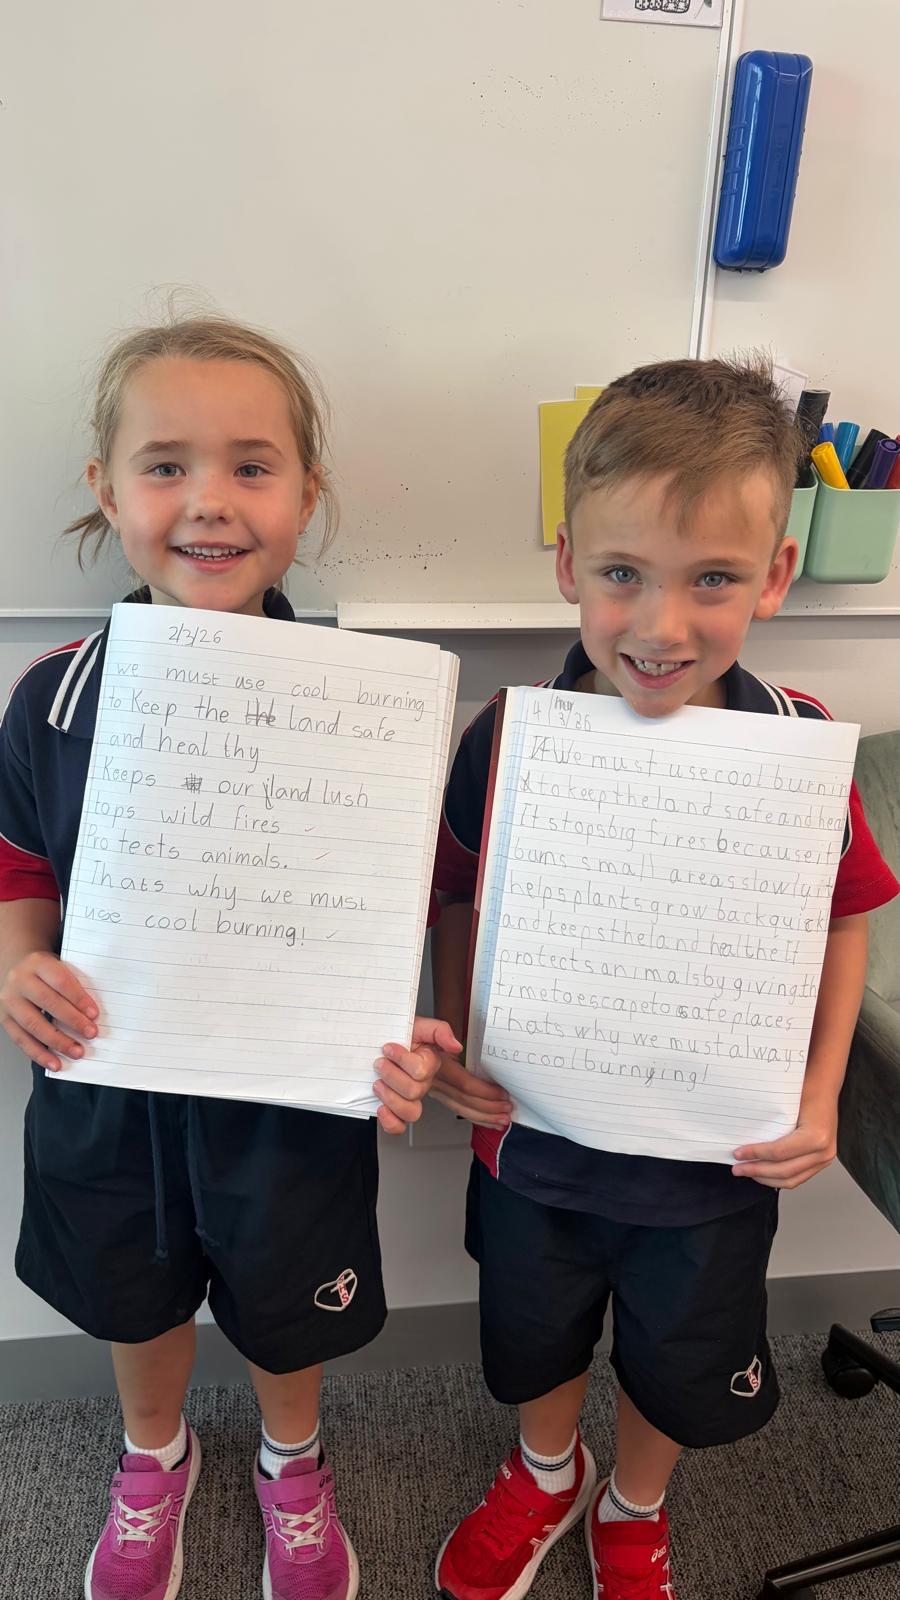 2/3/26
we must use cool burning
to Keep the the land safe
and heal thy
Keeps our land lush
tops wild fires
Protects animals.
Thats why we must
use cool burning!
4/3/26
We must use cool burnin
to keep the land safe and hea
It stops big fires because it
burns small areas slowly it
helps plants grow back quick
and keeps the land healthe It
protects animals by giving th
time to escape to safe places
Thats why we must always
use cool burnying!